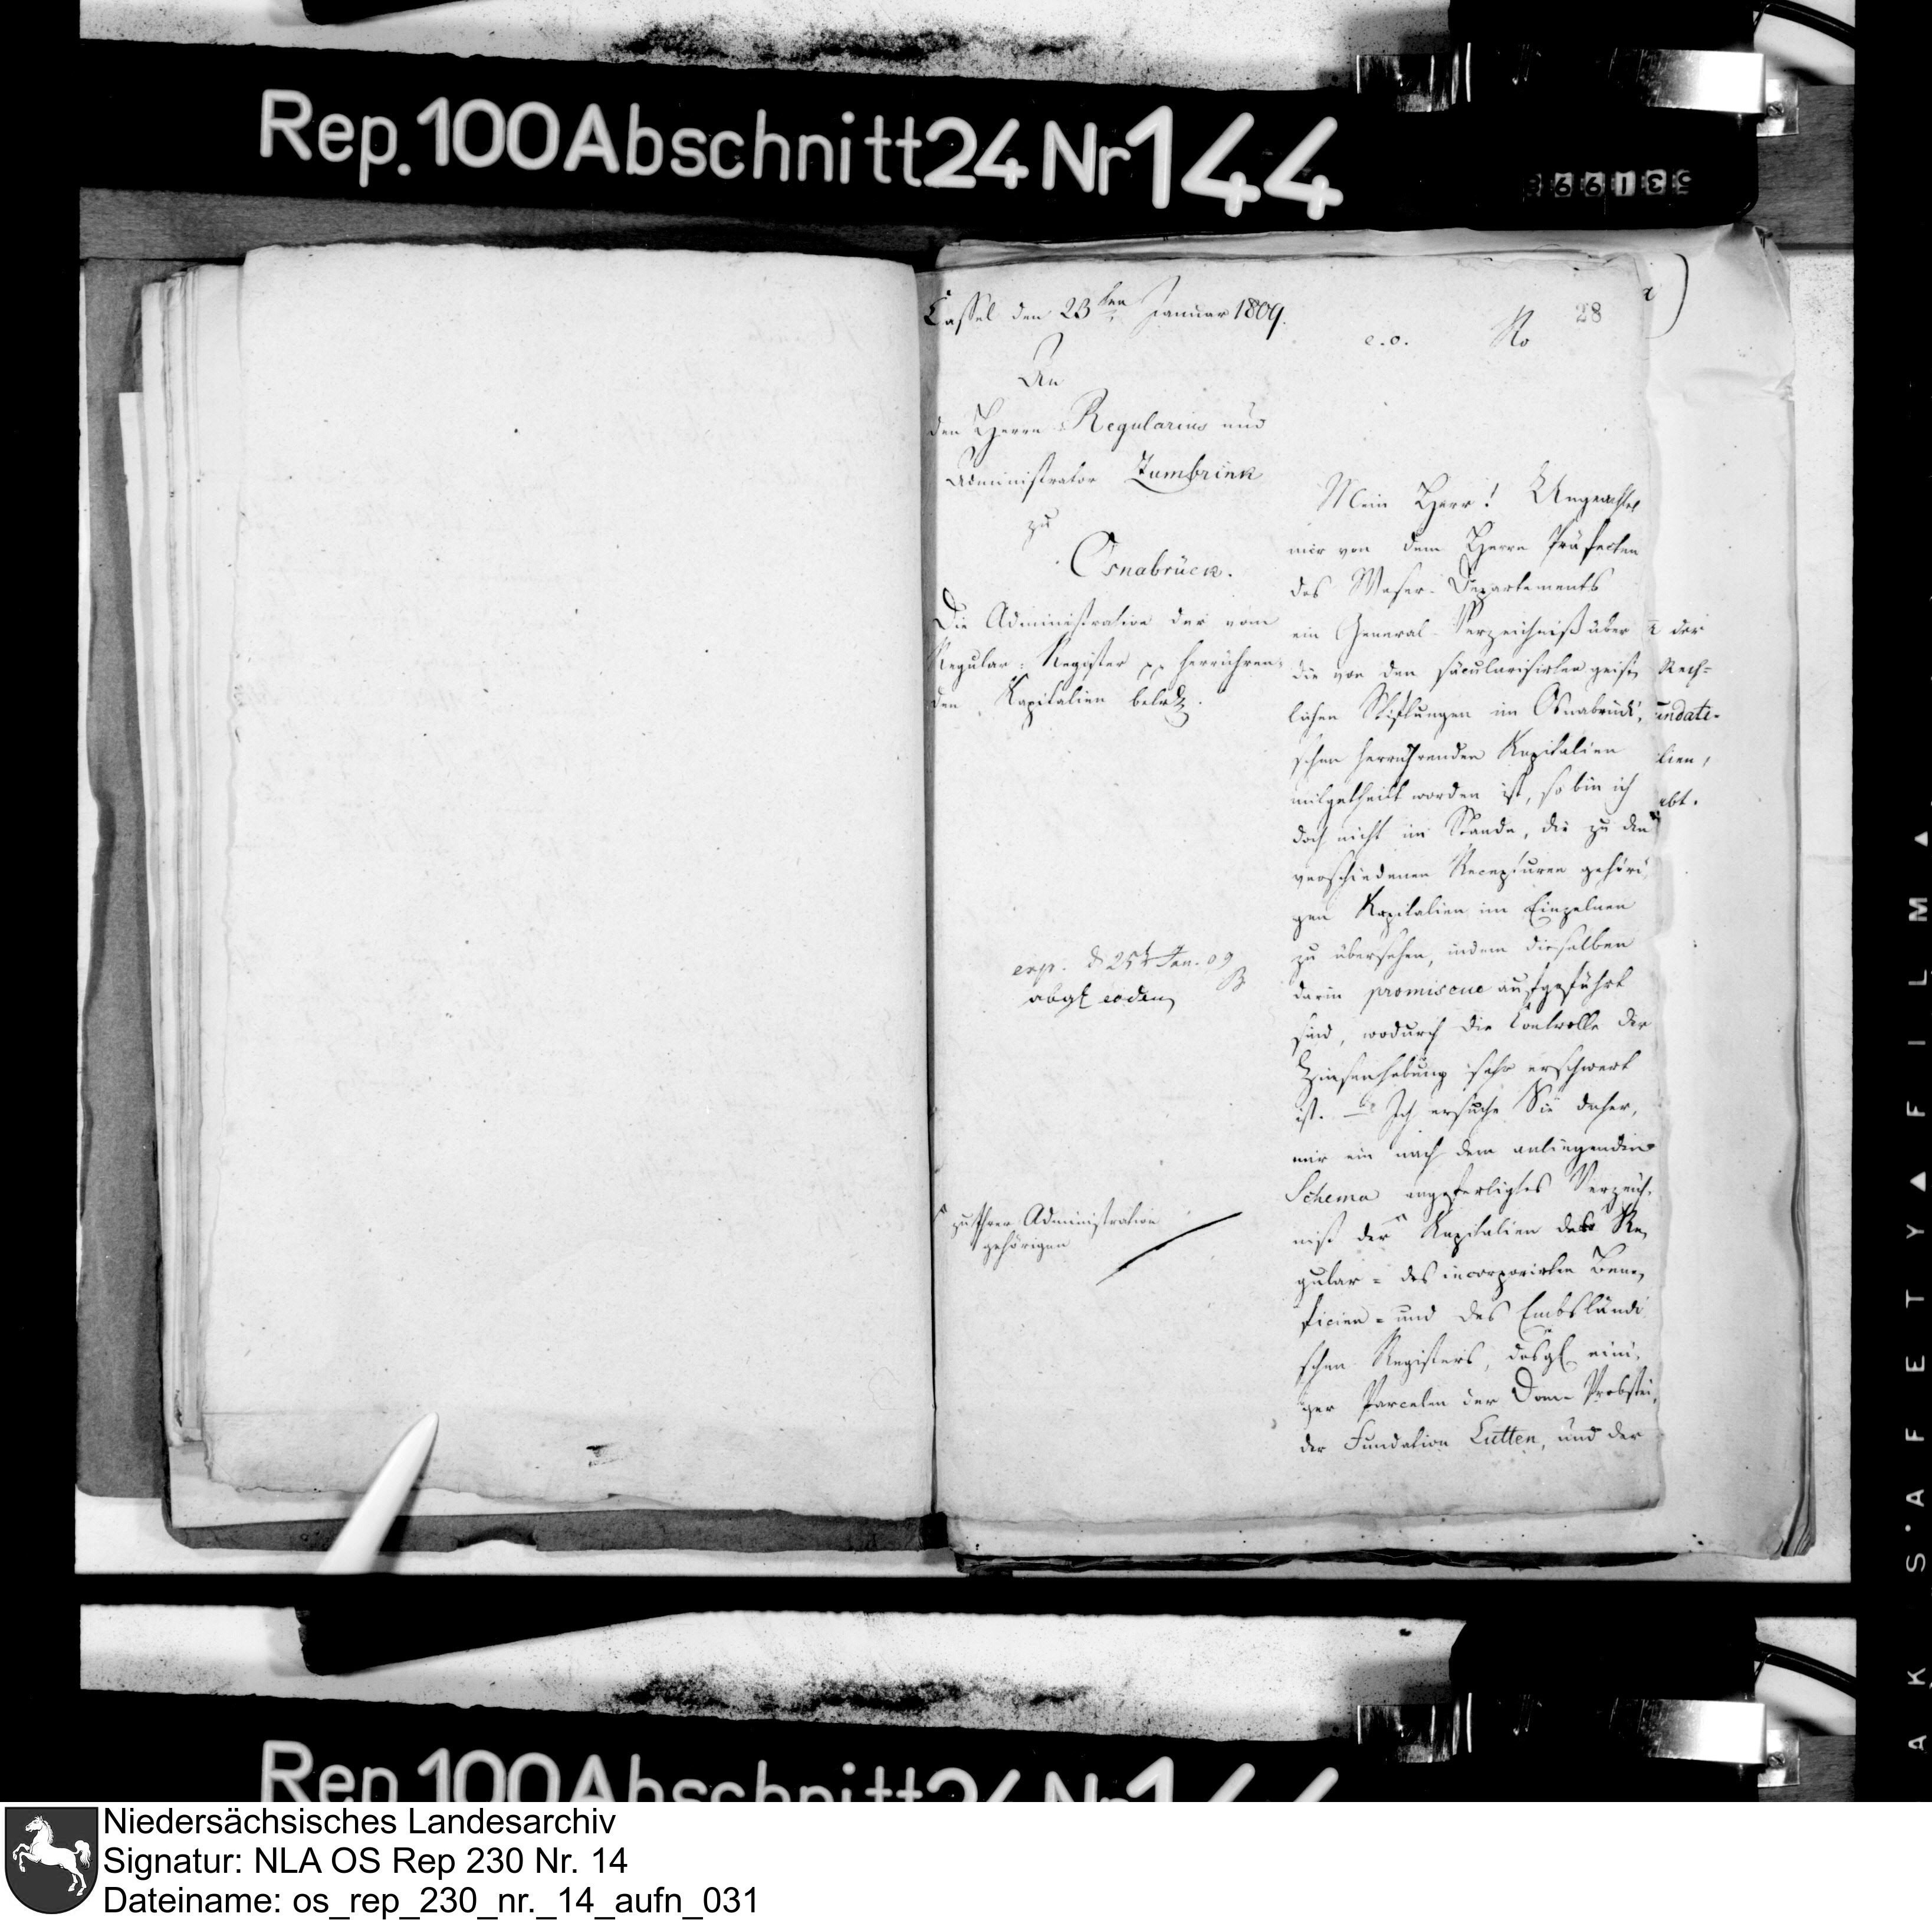 Rep. 100 Abschnitt 24 Nr 144
28
Cassel den 23ten Januar 1809.
e. o. No
An
den Herrn Regularius und
Administrator Zumbrink
zu
Osnabrück.
Die Administration der vom
Regular-Register herrühren-
den Kapitalien betr.
exp. d 25t Jan. 09
abgl eodem
zu Ihrer Administration
gehörigen
Mein Herr! Ungeachtet
mir von dem Herrn Präfecten
des Weser-Departements
ein General-Verzeichniß über
die von den säcularisirten geist-
lichen Stiftungen im Osnabrück-
schen herrührenden Kapitalien
mitgetheilt worden ist, so bin ich
doch nicht im Stande, die zu den
verschiedenen Recepturen gehöri-
gen Kapitalien im Einzelnen
zu übersehen, indem dieselben
darin promiscue aufgeführt
sind, wodurch die Controlle der
Zinsenhebung sehr erschwert
ist. — Ich ersuche Sie daher,
mir ein nach dem anliegenden
Schema angefertigtes Verzeich-
niß der Kapitalien des Re-
gular- des incorporirten Bene-
ficien- und des Embsländi-
schen Registers, desgl eini-
ger Parcelen der Dom-Probstei,
der Fundation Lutten, und der
der
Rech-
undati-
lien,
ebt.
AK S.A F E T Y ▲ F I L M ▲
Rep. 100 Abschnitt 24 Nr 144
Niedersächsisches Landesarchiv
Signatur: NLA OS Rep 230 Nr. 14
Dateiname: os_rep_230_nr._14_aufn_031